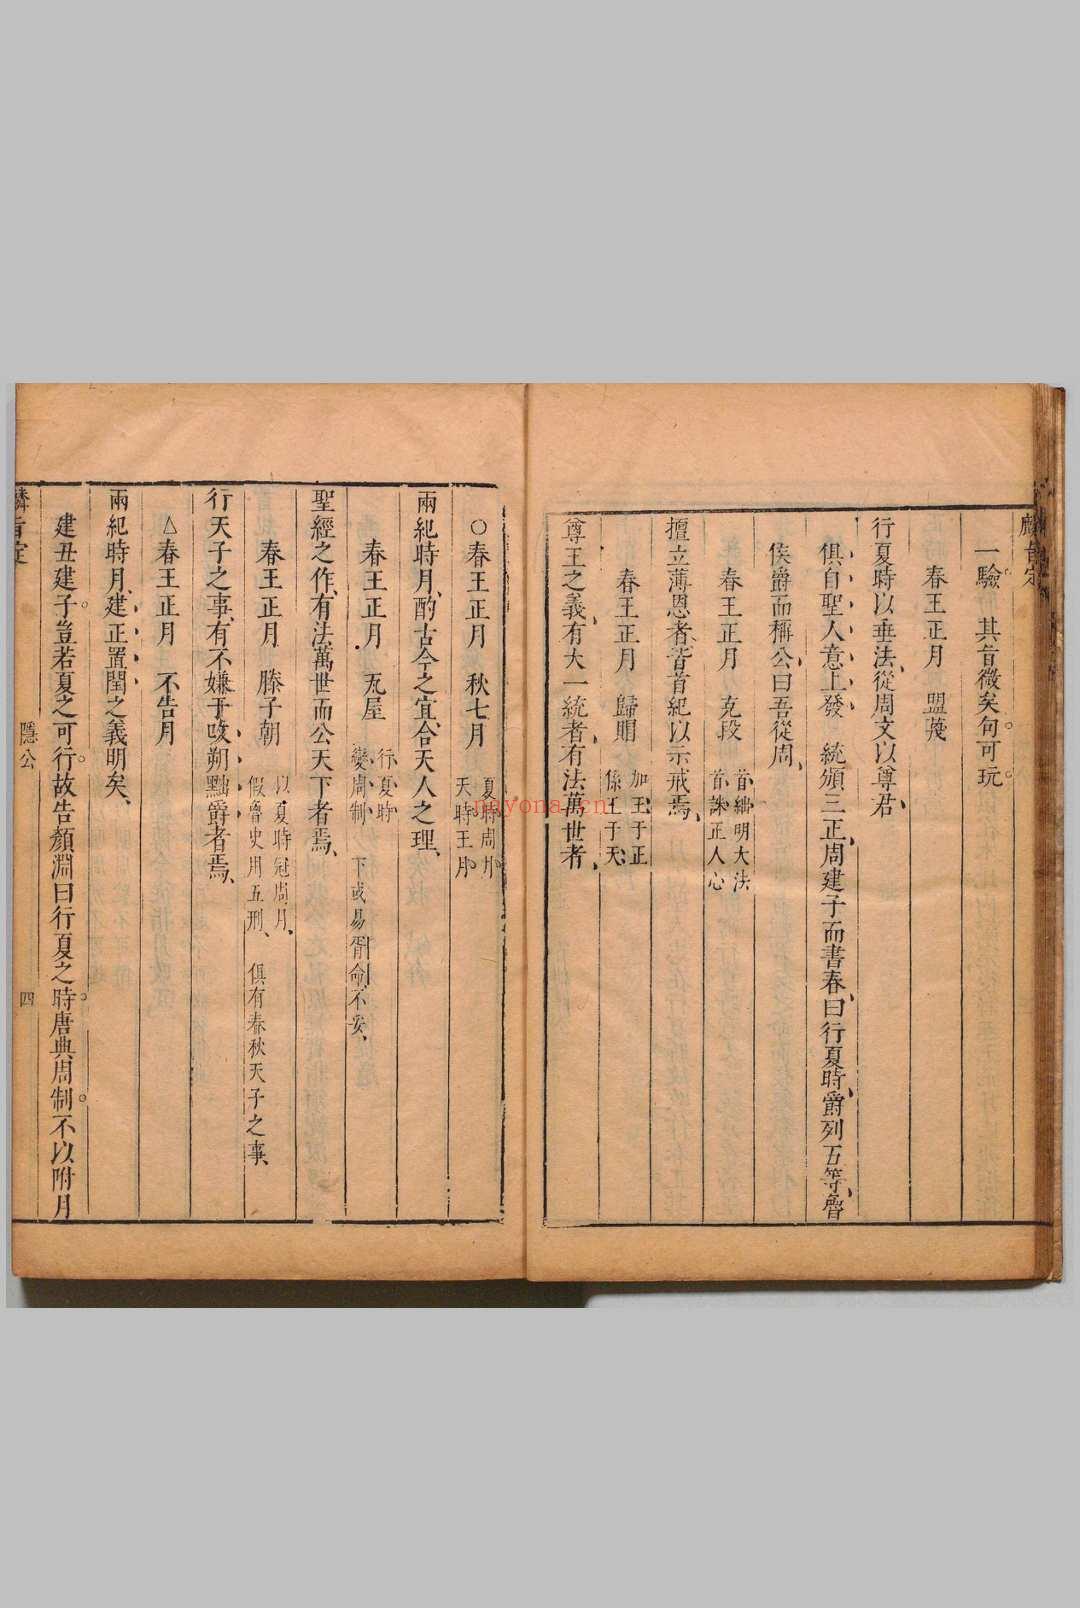 麟旨定
一驗其旨微矣句可玩
春王正月　盟蔑
行夏時以垂法從周文以尊君
俱自聖人意上發　統頒三正周建子而書春曰行夏時爵列五等魯
侯爵而稱公曰吾從周
春王正月　克段　首絀明大法
首誅正人心
擅立薄恩者皆首紀以示戒焉
春王正月　歸賵　加王于正
係王于天
尊王之義有大一統者有法萬世者
○春王正月　秋七月　夏時周月
天時王月
兩紀時月酌古今之宜合天人之理
春王正月　瓦屋　行夏時
變周制　下或易胥命不妥
聖經之作有法萬世而公天下者焉
春王正月　滕子朝　以夏時冠周月
假魯史用五刑　俱有春秋天子之事
行天子之事有不嫌于改朔黜爵者焉
△春王正月　不告月
兩紀時月建正置閏之義明矣
建丑建子豈若夏之可行故告顏淵曰行夏之時唐典周制不以附月
麟旨定　隱公　四
nayona.cn